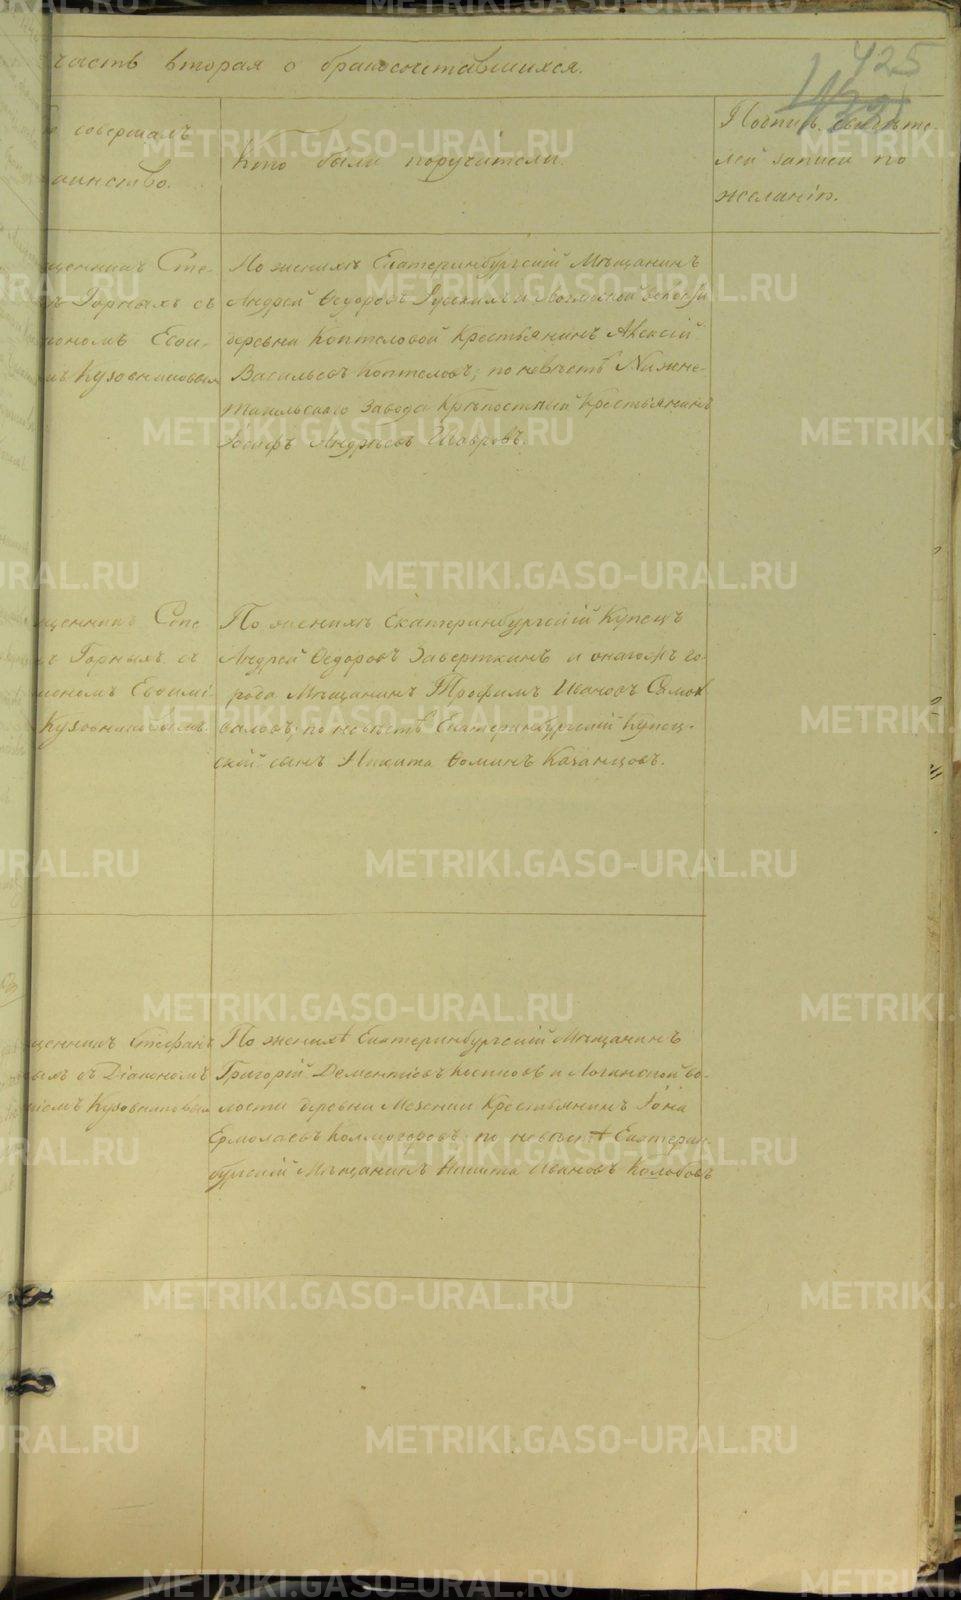 425
часть вторая о бракосочетавшихся.
совершалъ
таинство.
Кто были поручители.
Подпись свидѣте-
лей записи по
желанію.
щенникъ Сте-
Горныхъ съ
кономъ Евѳи-
мъ Кузовниковымъ
По женихѣ Екатеринбургскій Мѣщанинъ
Андрей Ѳедоровъ и Логиновой волости
деревни Коптеловой Крестьянинъ Алексій
Васильевъ Коптеловъ; по невѣстѣ Нижне-
Тагильскаго Завода Крѣпостный Крестьянинъ
Іосифъ Андреевъ Шавровъ.
щенникъ Сте
Горныхъ съ
кономъ Евѳимі
Кузовниковымъ.
По женихѣ Екатеринбургскій Купецъ
Андрей Ѳедоровъ Заверткинъ и онагожъ го-
рода Мѣщанинъ Трофимъ Ивановъ Само
валовъ; по невѣстѣ Екатеринбургскій Купец-
скій сынъ Никита Ѳоминъ Казанцовъ.
щенникъ Стефанъ
ымъ съ Діакономъ
міемъ Кузовниковым
По женихѣ Екатеринбургскій Мѣщанинъ
Григорій Дементіевъ и Логиновой во-
лости деревни Мезенки Крестьянинъ Іона
Ермолаевъ Колмогоровъ; по невѣстѣ Екатерин-
бургскій Мѣщанинъ Никита Ивановъ Колобовъ
METRIKI.GASO-URAL.RU